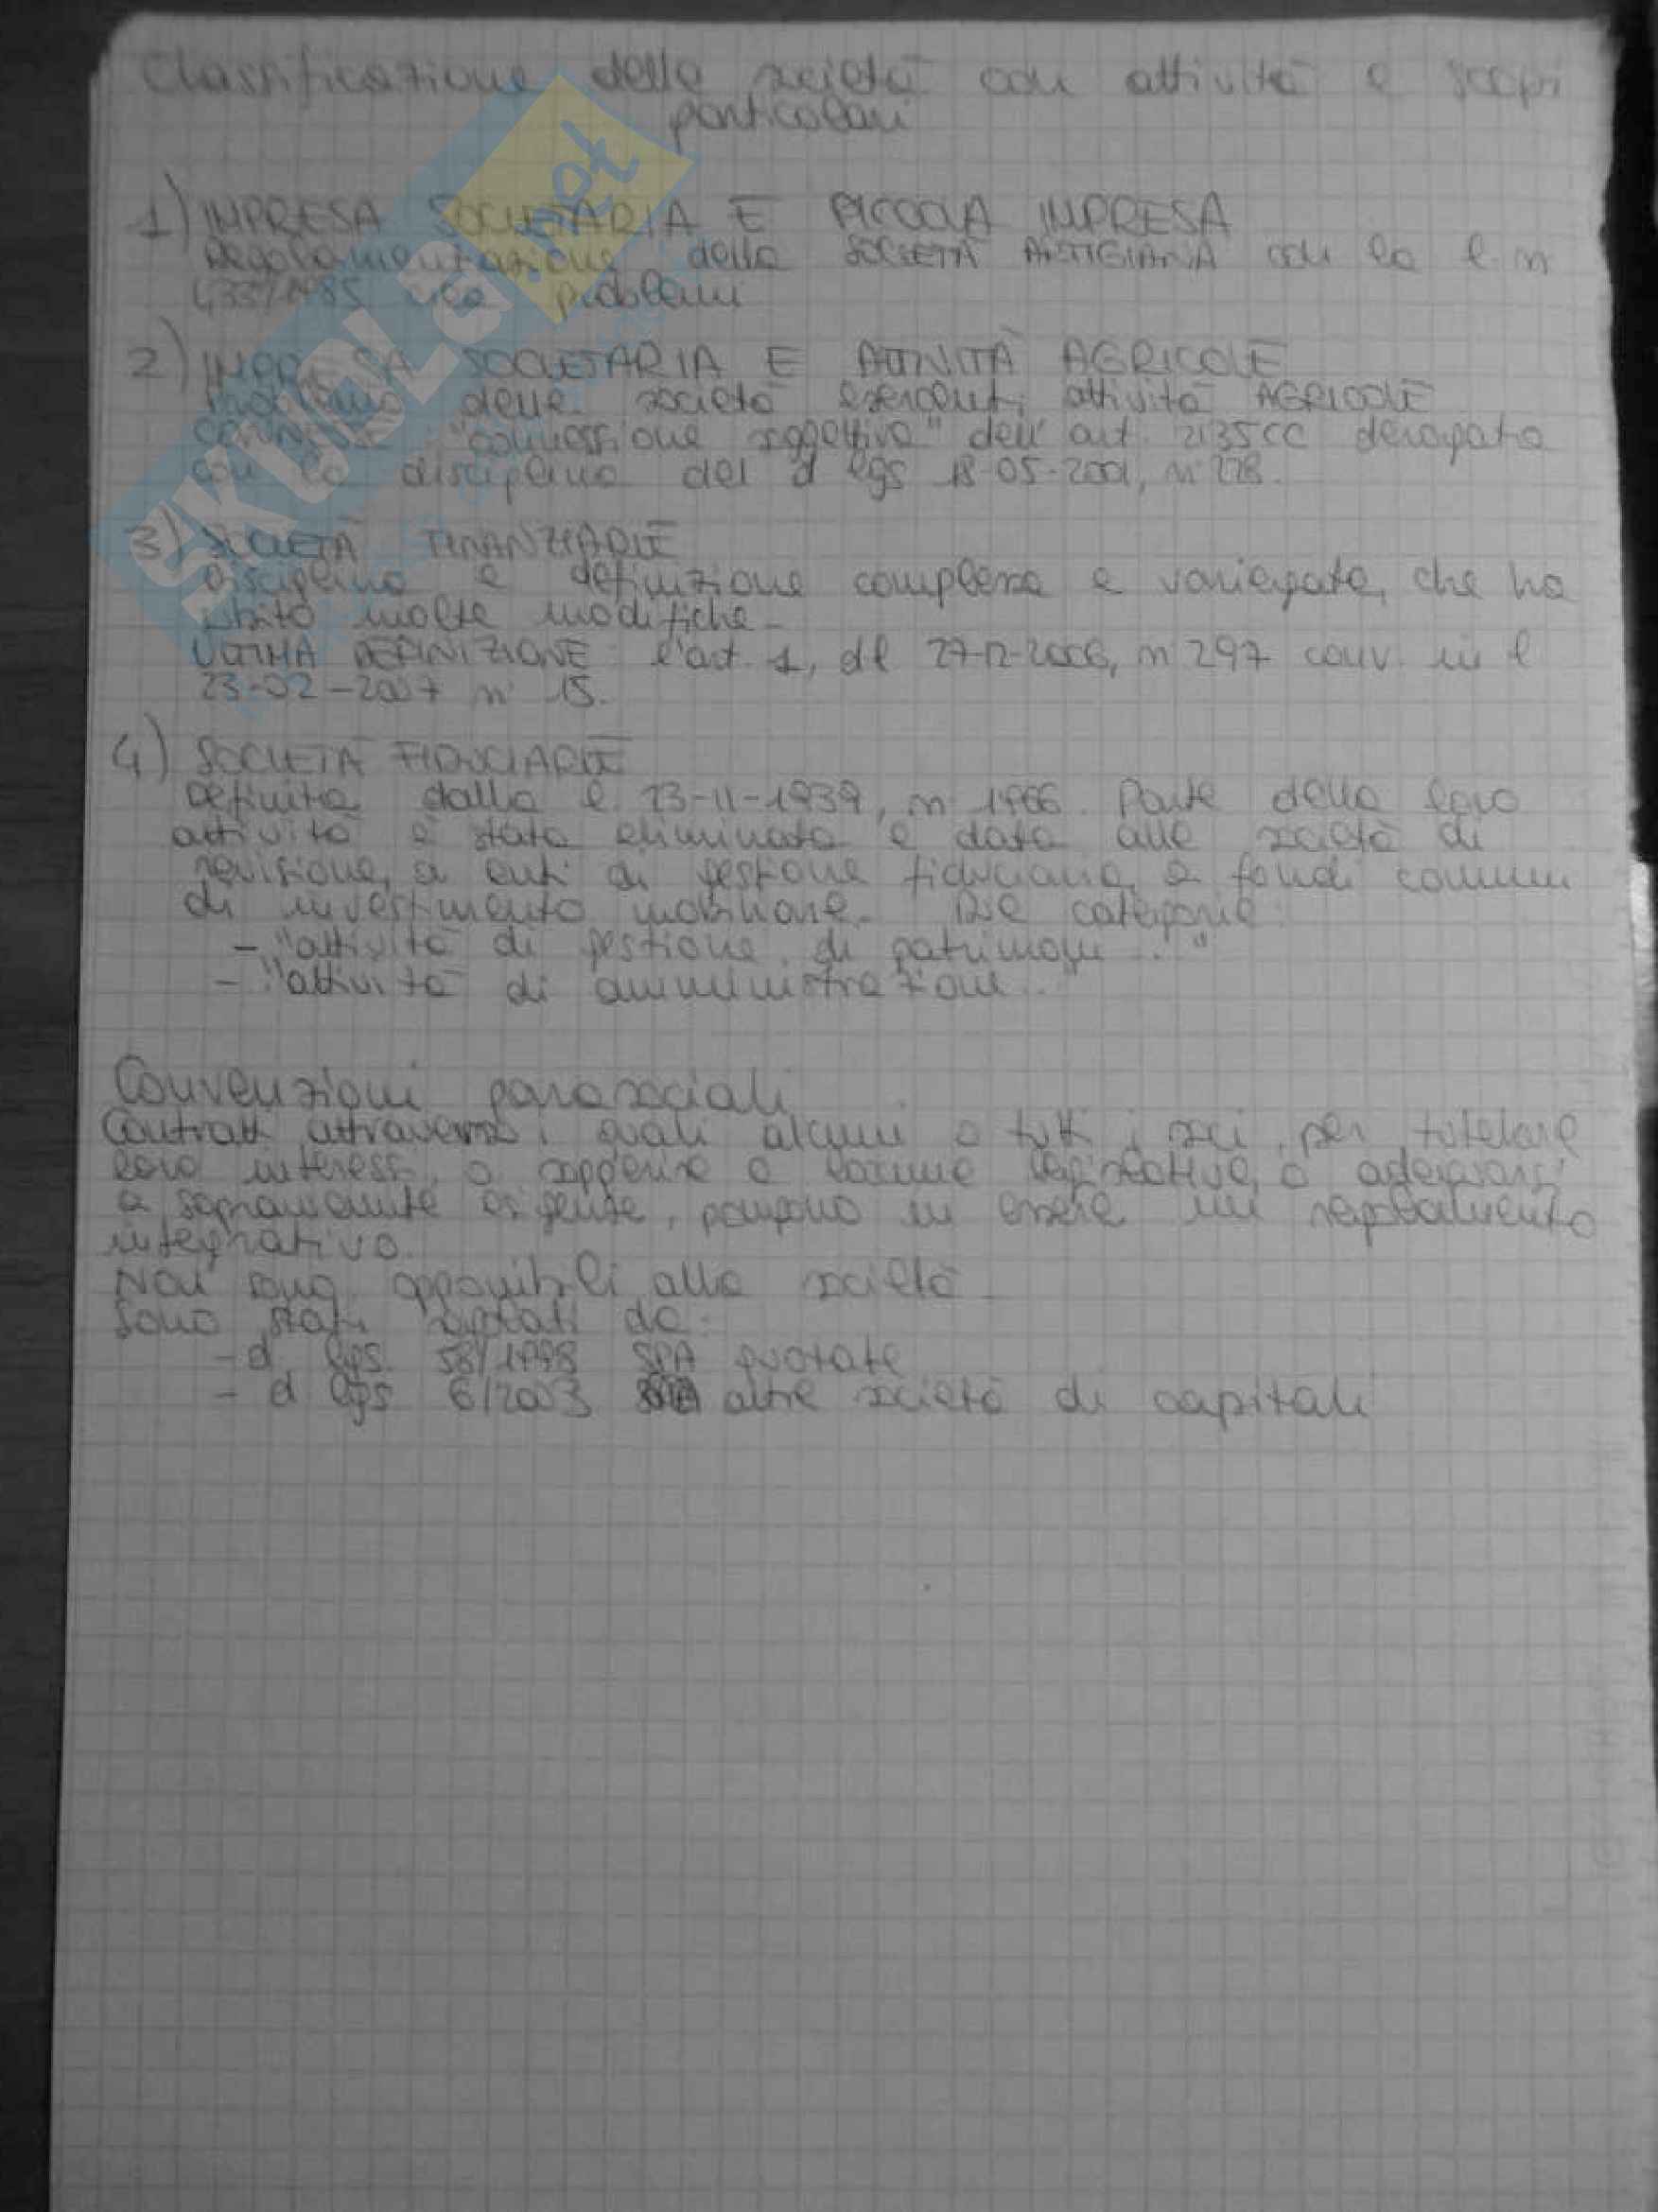 Classificazione delle società con attività e scopi
particolari
1) IMPRESA SOCIETARIA E PICCOLA IMPRESA
Regolamentazione della SOCIETÀ ARTIGIANA con la l. n
433/1985 problemi
2) IMPRESA SOCIETARIA E ATTIVITÀ AGRICOLE
Problema delle società esercenti attività AGRICOLE
CONNESSE "connessione soggettiva" dell'art. 2135cc derogata
con la disciplina del d lgs 18-05-2001, n 228.
3) SOCIETÀ FINANZIARIE
Disciplina e definizione complessa e variegata, che ha
subito molte modifiche.
ULTIMA DEFINIZIONE: l'art. 1, dl 27-12-2006, n 297 conv. in l
23-02-2007 n 15.
4) SOCIETÀ FIDUCIARIE
Definita dalla l. 23-11-1939, n 1966. Parte della loro
attività è stata eliminata e data alle società di
revisione, a enti di gestione fiduciaria, a fondi comuni
di investimento mobiliare. Due categorie:
- "attività di gestione di patrimoni..."
- "attività di amministrazioni..."
Convenzioni parasociali
Contratti attraverso i quali alcuni o tutti i soci, per tutelare
loro interessi, o sopperire a lacune legislative, o adeguarsi
a sopravvenute esigenze, pongono in essere un regolamento
integrativo.
Non sono opponibili alla società
Sono stati da:
- d. lgs. 58/1998 SPA quotate
- d lgs 6/2003 altre società di capitali
SKUOLA.net